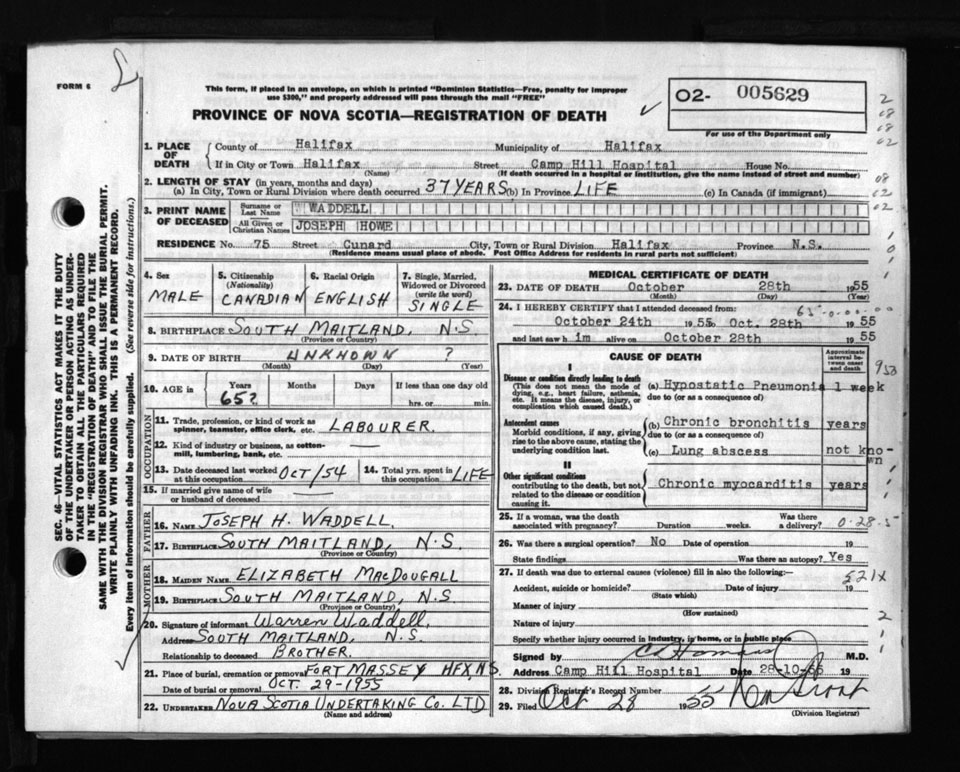 FORM 6
This form, if placed in an envelope, on which is printed "Dominion Statistics—Free, penalty for improper
use $300," and properly addressed will pass through the mail "FREE"
PROVINCE OF NOVA SCOTIA—REGISTRATION OF DEATH
02- 005629
For use of the Department only
SEC. 46—VITAL STATISTICS ACT MAKES IT THE DUTY
OF THE UNDERTAKER OR PERSON ACTING AS UNDER-
TAKER TO OBTAIN ALL THE PARTICULARS REQUIRED
IN THE "REGISTRATION OF DEATH" AND TO FILE THE
SAME WITH THE DIVISION REGISTRAR WHO SHALL ISSUE THE BURIAL PERMIT.
WRITE PLAINLY WITH UNFADING INK. THIS IS A PERMANENT RECORD.
Every item of information should be carefully supplied. (See reverse side for instructions.)
1. PLACE OF DEATH
County of Halifax Municipality of Halifax
If in City or Town Halifax Street Camp Hill Hospital House No.
(Name) (If death occurred in a hospital or institution, give the name instead of street and number)
2. LENGTH OF STAY (in years, months and days)
(a) In City, Town or Rural Division where death occurred 37 YEARS (b) In Province LIFE (c) In Canada (if immigrant)
3. PRINT NAME OF DECEASED
Surname or Last Name WADDELL
All Given or Christian Names JOSEPH HOWE
RESIDENCE No. 75 Street Cunard City, Town or Rural Division Halifax Province N.S.
(Residence means usual place of abode. Post Office Address for residents in rural parts not sufficient)
4. Sex MALE
5. Citizenship (Nationality) CANADIAN
6. Racial Origin ENGLISH
7. Single, Married, Widowed or Divorced (write the word) SINGLE
8. BIRTHPLACE SOUTH MAITLAND, N.S.
(Province or Country)
9. DATE OF BIRTH UNKNOWN ?
(Month) (Day) (Year)
10. AGE in Years Months Days If less than one day old
65? hrs. or min.
OCCUPATION
11. Trade, profession, or kind of work as spinner, teamster, office clerk, etc. LABOURER.
12. Kind of industry or business, as cotton-mill, lumbering, bank, etc. —
13. Date deceased last worked at this occupation OCT/54
14. Total yrs. spent in this occupation LIFE
15. If married give name of wife or husband of deceased —
FATHER
16. NAME JOSEPH H. WADDELL.
17. BIRTHPLACE SOUTH MAITLAND, N.S.
(Province or Country)
MOTHER
18. MAIDEN NAME ELIZABETH MACDOUGALL
19. BIRTHPLACE SOUTH MAITLAND, N.S.
(Province or Country)
20. Signature of informant Warren Waddell.
Address SOUTH MAITLAND, N.S.
Relationship to deceased BROTHER.
21. Place of burial, cremation or removal FORT MASSEY HFX, N.S.
Date of burial or removal OCT. 29-1955
22. UNDERTAKER NOVA SCOTIA UNDERTAKING CO. LTD
(Name and address)
MEDICAL CERTIFICATE OF DEATH
23. DATE OF DEATH October 28th 1955
(Month) (Day) (Year)
24. I HEREBY CERTIFY that I attended deceased from:
October 24th 1955, Oct. 28th 1955
and last saw h im alive on October 28th 1955
CAUSE OF DEATH
Approximate interval between onset and death
I
Disease or condition directly leading to death
(This does not mean the mode of dying, e.g., heart failure, asthenia, etc. It means the disease, injury, or complication which caused death.)
(a) Hypostatic Pneumonia 1 week
due to (or as a consequence of)
Antecedent causes
Morbid conditions, if any, giving rise to the above cause, stating the underlying condition last.
(b) Chronic bronchitis years
due to (or as a consequence of)
(c) Lung abscess not known
II
Other significant conditions
contributing to the death, but not related to the disease or condition causing it.
Chronic myocarditis years
25. If a woman, was the death associated with pregnancy? Duration weeks. Was there a delivery?
26. Was there a surgical operation? No Date of operation 19
State findings Was there an autopsy? Yes
27. If death was due to external causes (violence) fill in also the following:—
Accident, suicide or homicide? Date of injury 19
(State which)
Manner of injury
(How sustained)
Nature of injury
Specify whether injury occurred in industry, in home, or in public place
Signed by M.D.
Address Camp Hill Hospital Date 28-10-55 19
28. Division Registrar's Record Number
29. Filed Oct 28 1955
(Division Registrar)